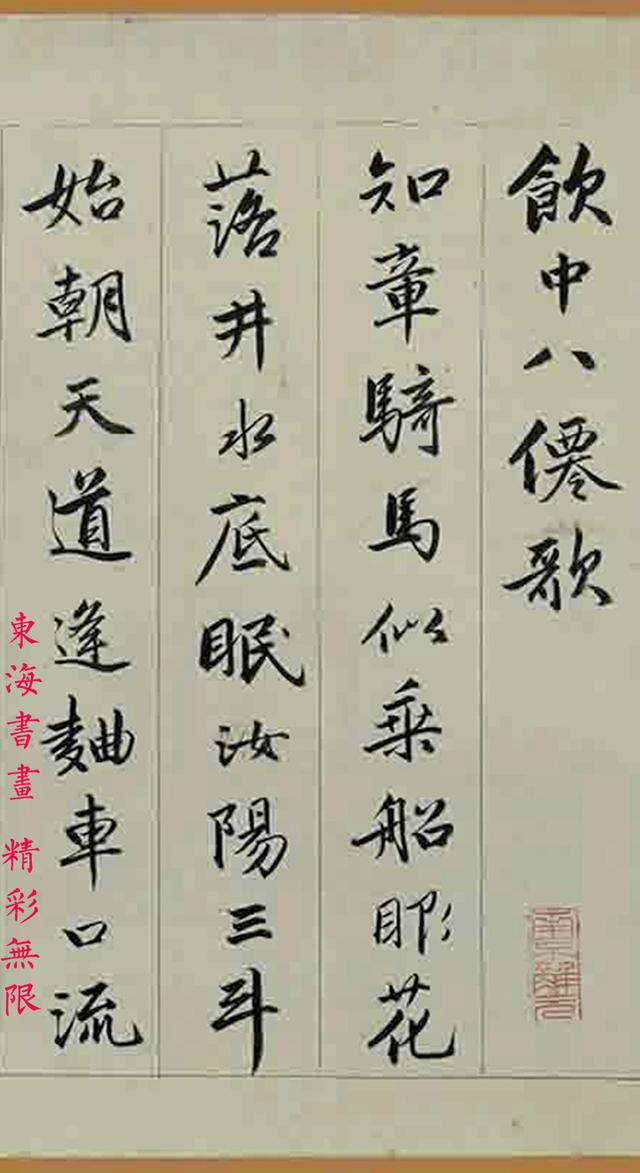 飲中八僊歌
知章騎馬似乘船眼花
落井水底眠汝陽三斗
始朝天道逢麯車口流
東海書畫 精彩無限